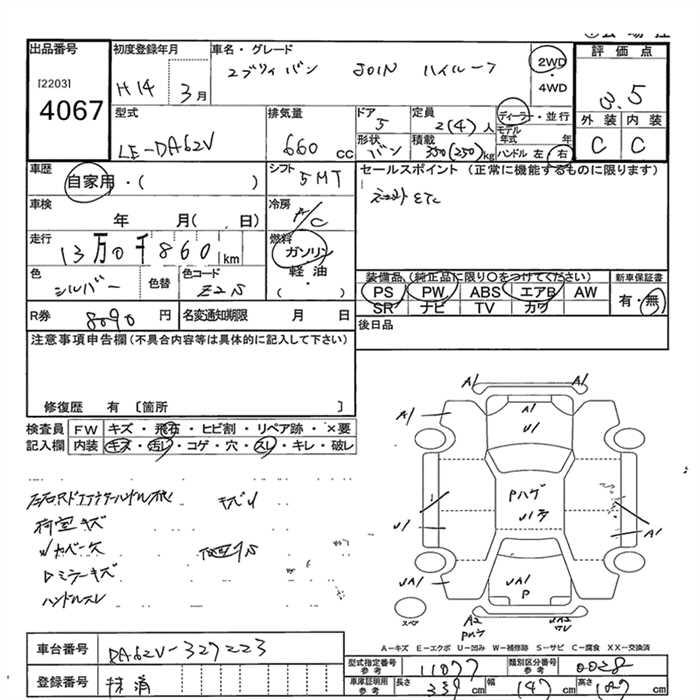 出品番号 初度登録年月 車名・グレード 評価点
[2203] H14 3月 エブリイ バン JOIN ハイルーフ 2WD・4WD 3.5
4067
型式 排気量 ドア 5 定員 2(4)人 ディーラー・並行 外装 内装
LE-DA62V 660cc 形状 バン 積載 350(250)kg モデル年式 年 C C
ハンドル 左 右
車歴 シフト セールスポイント (正常に機能するものに限ります)
自家用・( ) 5MT
車検 冷房 ETC
年 月( . 日) A/C
走行 燃料
13万0千860km ガソリン
色 シルバー 色替 色コード Z2S 軽油・( )
装備品 (純正品に限り○をつけてください) 新車保証書
PS PW ABS エアB AW 有・無
SR ナビ TV カワ
R券 8090円 名変通知期限 月 日 後日品
注意事項申告欄(不具合内容等は具体的に記入して下さい)
修復歴 有 〔箇所 〕
検査員 FW キズ・飛石・ヒビ割・リペア跡・×要
記入欄 内装 キズ・汚レ・コゲ・穴・スレ・キレ・破レ
荷室キズ
ミラーキズ
ハンドルスレ
A1 A1
A1 A1
U1
Pハゲ
U1 A1
UA1 UA1 A1
P
スペア A2
Pハゲ
A-キズ E-エクボ U-凹み W-補修跡 S-サビ C-腐食 XX-交換済
車台番号 DA62V-327223
型式指定番号 参考 11077 類別区分番号 参考 0028
登録番号 抹消
車庫証明用 参考 長さ 339cm 幅 147cm 高さ 187cm